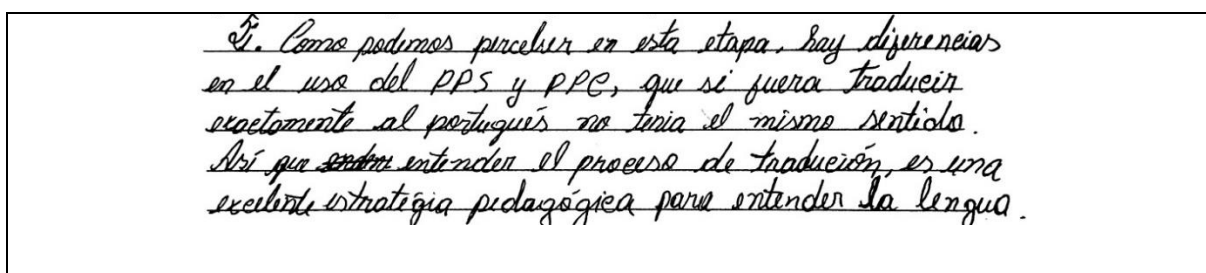 J. Como podemos perceber en esta etapa, hay diferencias
en el uso del PPS y PPC, que si fuera traducir
exactamente al portugués no tenia el mismo sentido.
Así que entender el proceso de tradución, es una
excelente estrategia pedagógica para entender la lengua.